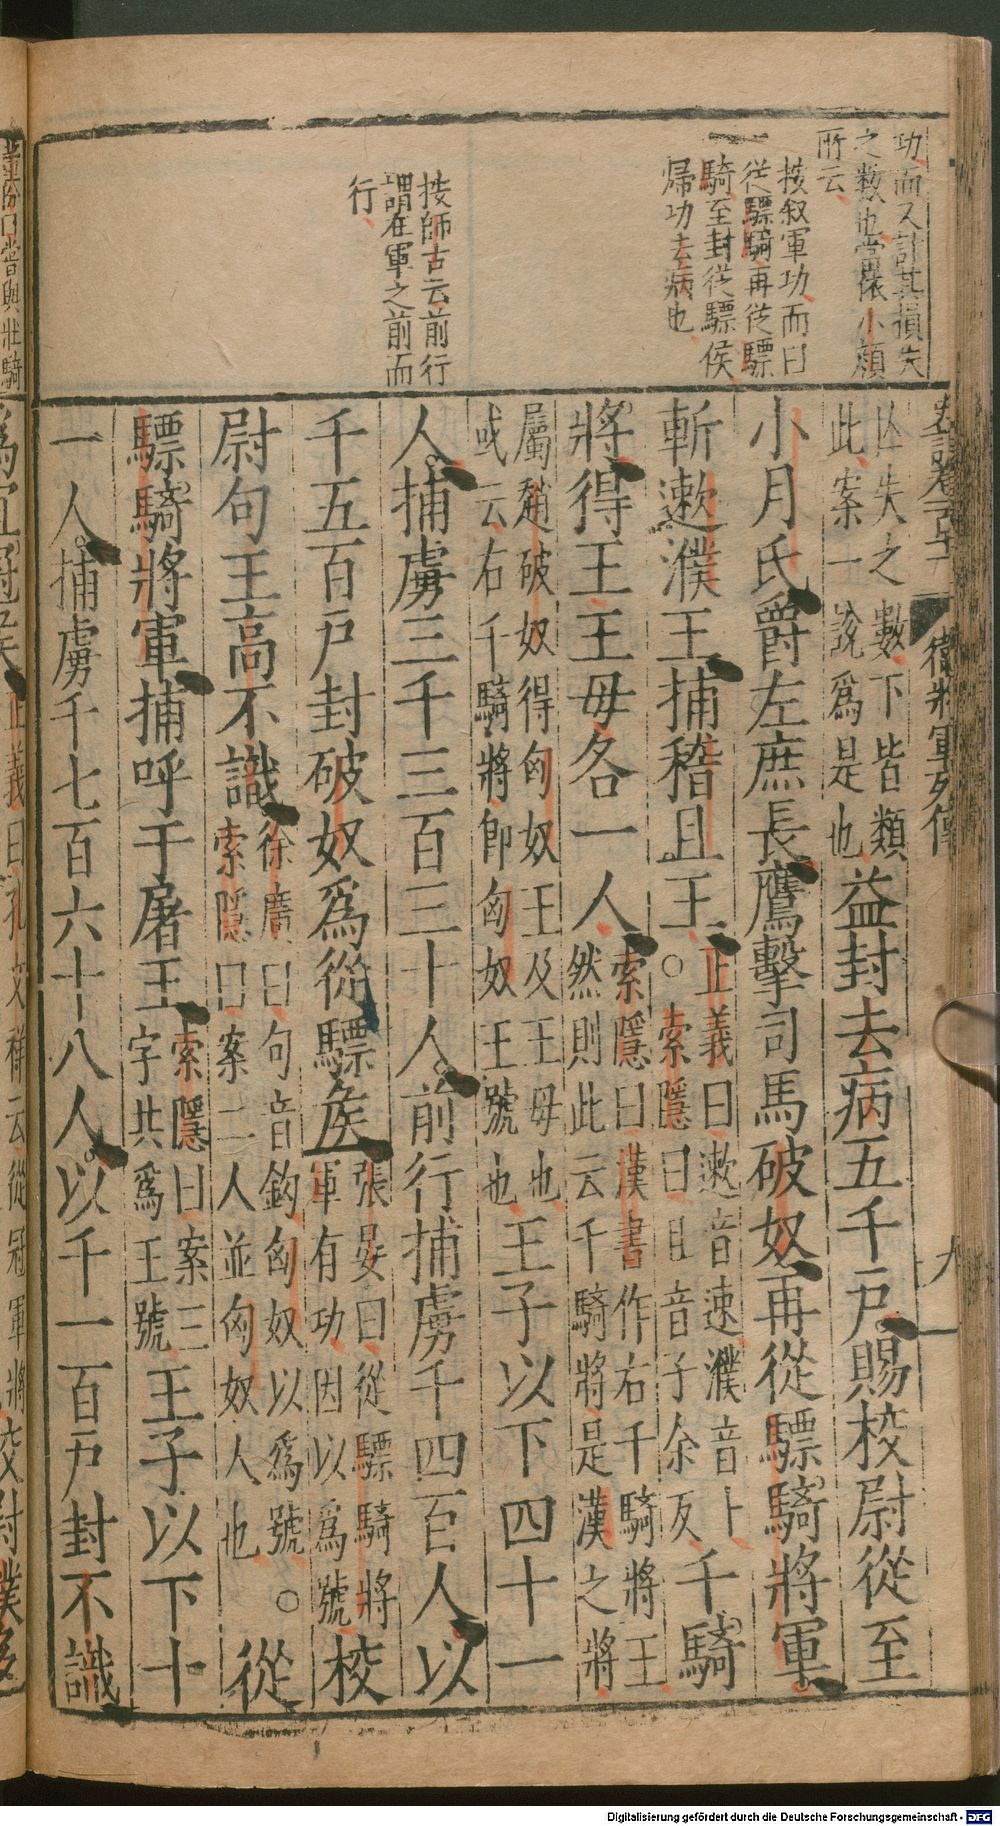 功而又計其損失
之數也當依小顏
所云
按叙軍功而曰
從驃騎再從驃
騎至封從驃侯
歸功去病也
按師古云前行
謂在軍之前而
行
衛將軍列傳
九
亾失之數下皆類
此案一說爲是也
益封去病五千戶賜校尉從至
小月氏爵左庶長鷹擊司馬破奴再從驃騎將軍
斬遬濮王捕稽且王
正義曰遬音速濮音卜
○索隱曰且音子余反
千騎
將得王王母各一人
索隱曰漢書作右千騎將王
然則此云千騎將是漢之將
屬趙破奴得匈奴王及王母也
或云右千騎將卽匈奴王號也
王子以下四十一
人捕虜三千三百三十人前行捕虜千四百人以
千五百戶封破奴爲從驃侯
張晏曰從驃騎將
軍有功因以爲號
校
尉句王高不識
徐廣曰句音鉤匈奴以爲號○
索隱曰案二人並匈奴人也
從
驃騎將軍捕呼于屠王
索隱曰案三
字共爲王號
王子以下十
一人捕虜千七百六十八人以千一百戶封不識
Digitalisierung gefördert durch die Deutsche Forschungsgemeinschaft - DFG